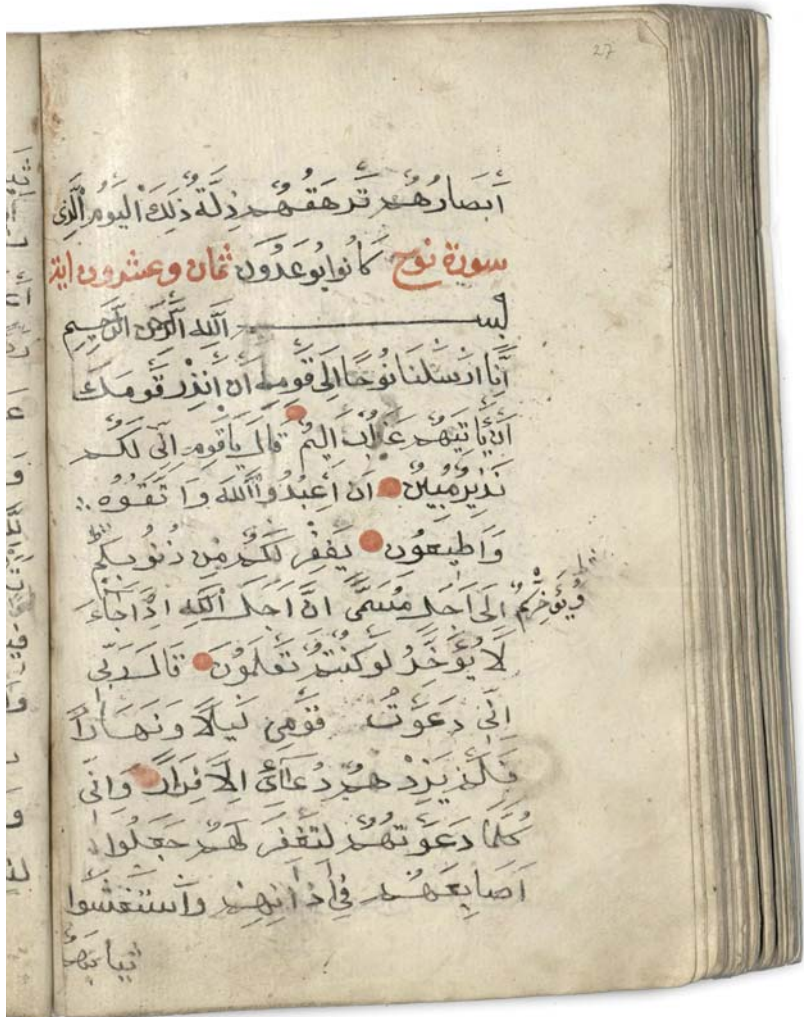 27
أبصارهم ترهقهم ذلة ذلك اليوم الذي
سورة نوح كانوا يوعدون ثمان وعشرون اية
بسم الله الرحمن الرحيم
إنا أرسلنا نوحا إلى قومه أن أنذر قومك
أن يأتيهم عذاب أليم قال ياقوم إني لكم
نذير مبين أن اعبدوا الله واتقوه
وأطيعون يغفر لكم من ذنوبكم
ويؤخركم إلى أجل مسمى إن أجل الله إذا جاء
لا يؤخر لو كنتم تعلمون قال رب
إني دعوت قومي ليلا ونهارا
فلم يزدهم دعائي إلا فرارا وإني
كلما دعوتهم لتغفر لهم جعلوا
أصابعهم في آذانهم واستغشوا
ثيابهم